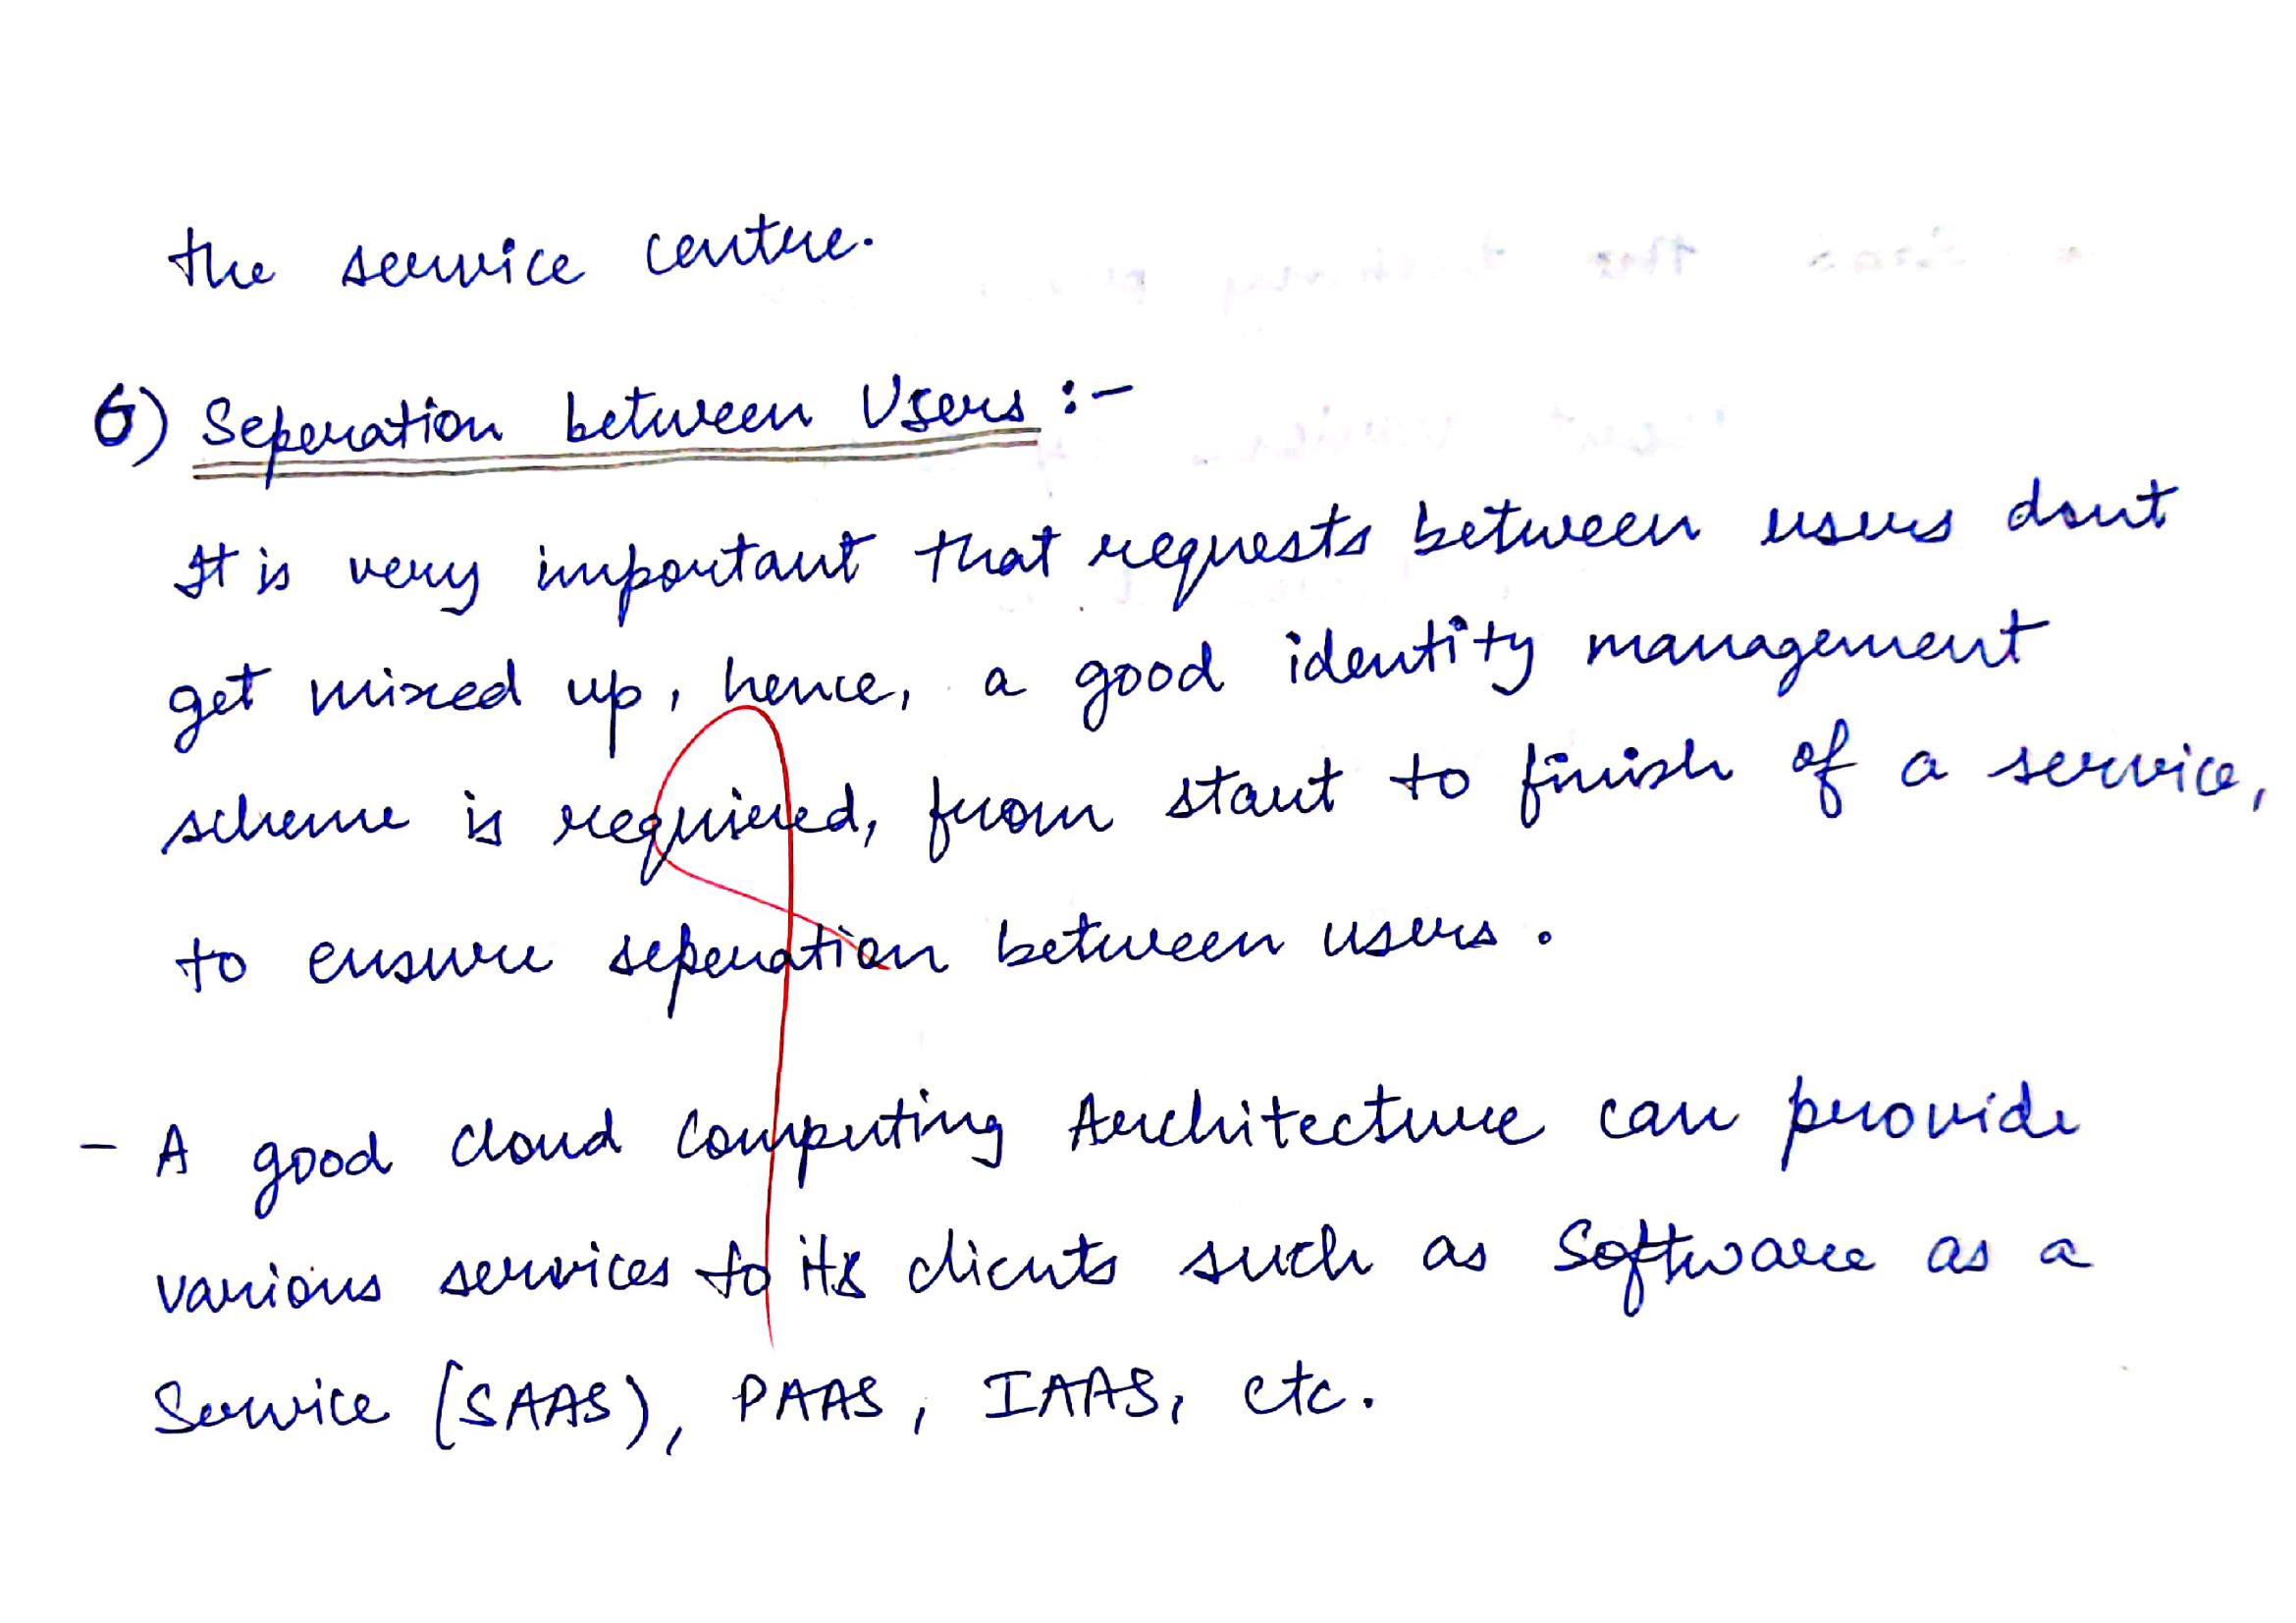 the service centre.
6) Seperation between Users :-
It is very important that requests between users dont
get mixed up, hence, a good identity management
scheme is required, from start to finish of a service,
to ensure seperation between users.
- A good cloud computing Architecture can provide
various services to its clients such as Software as a
Service (SAAS), PAAS, IAAS, etc.